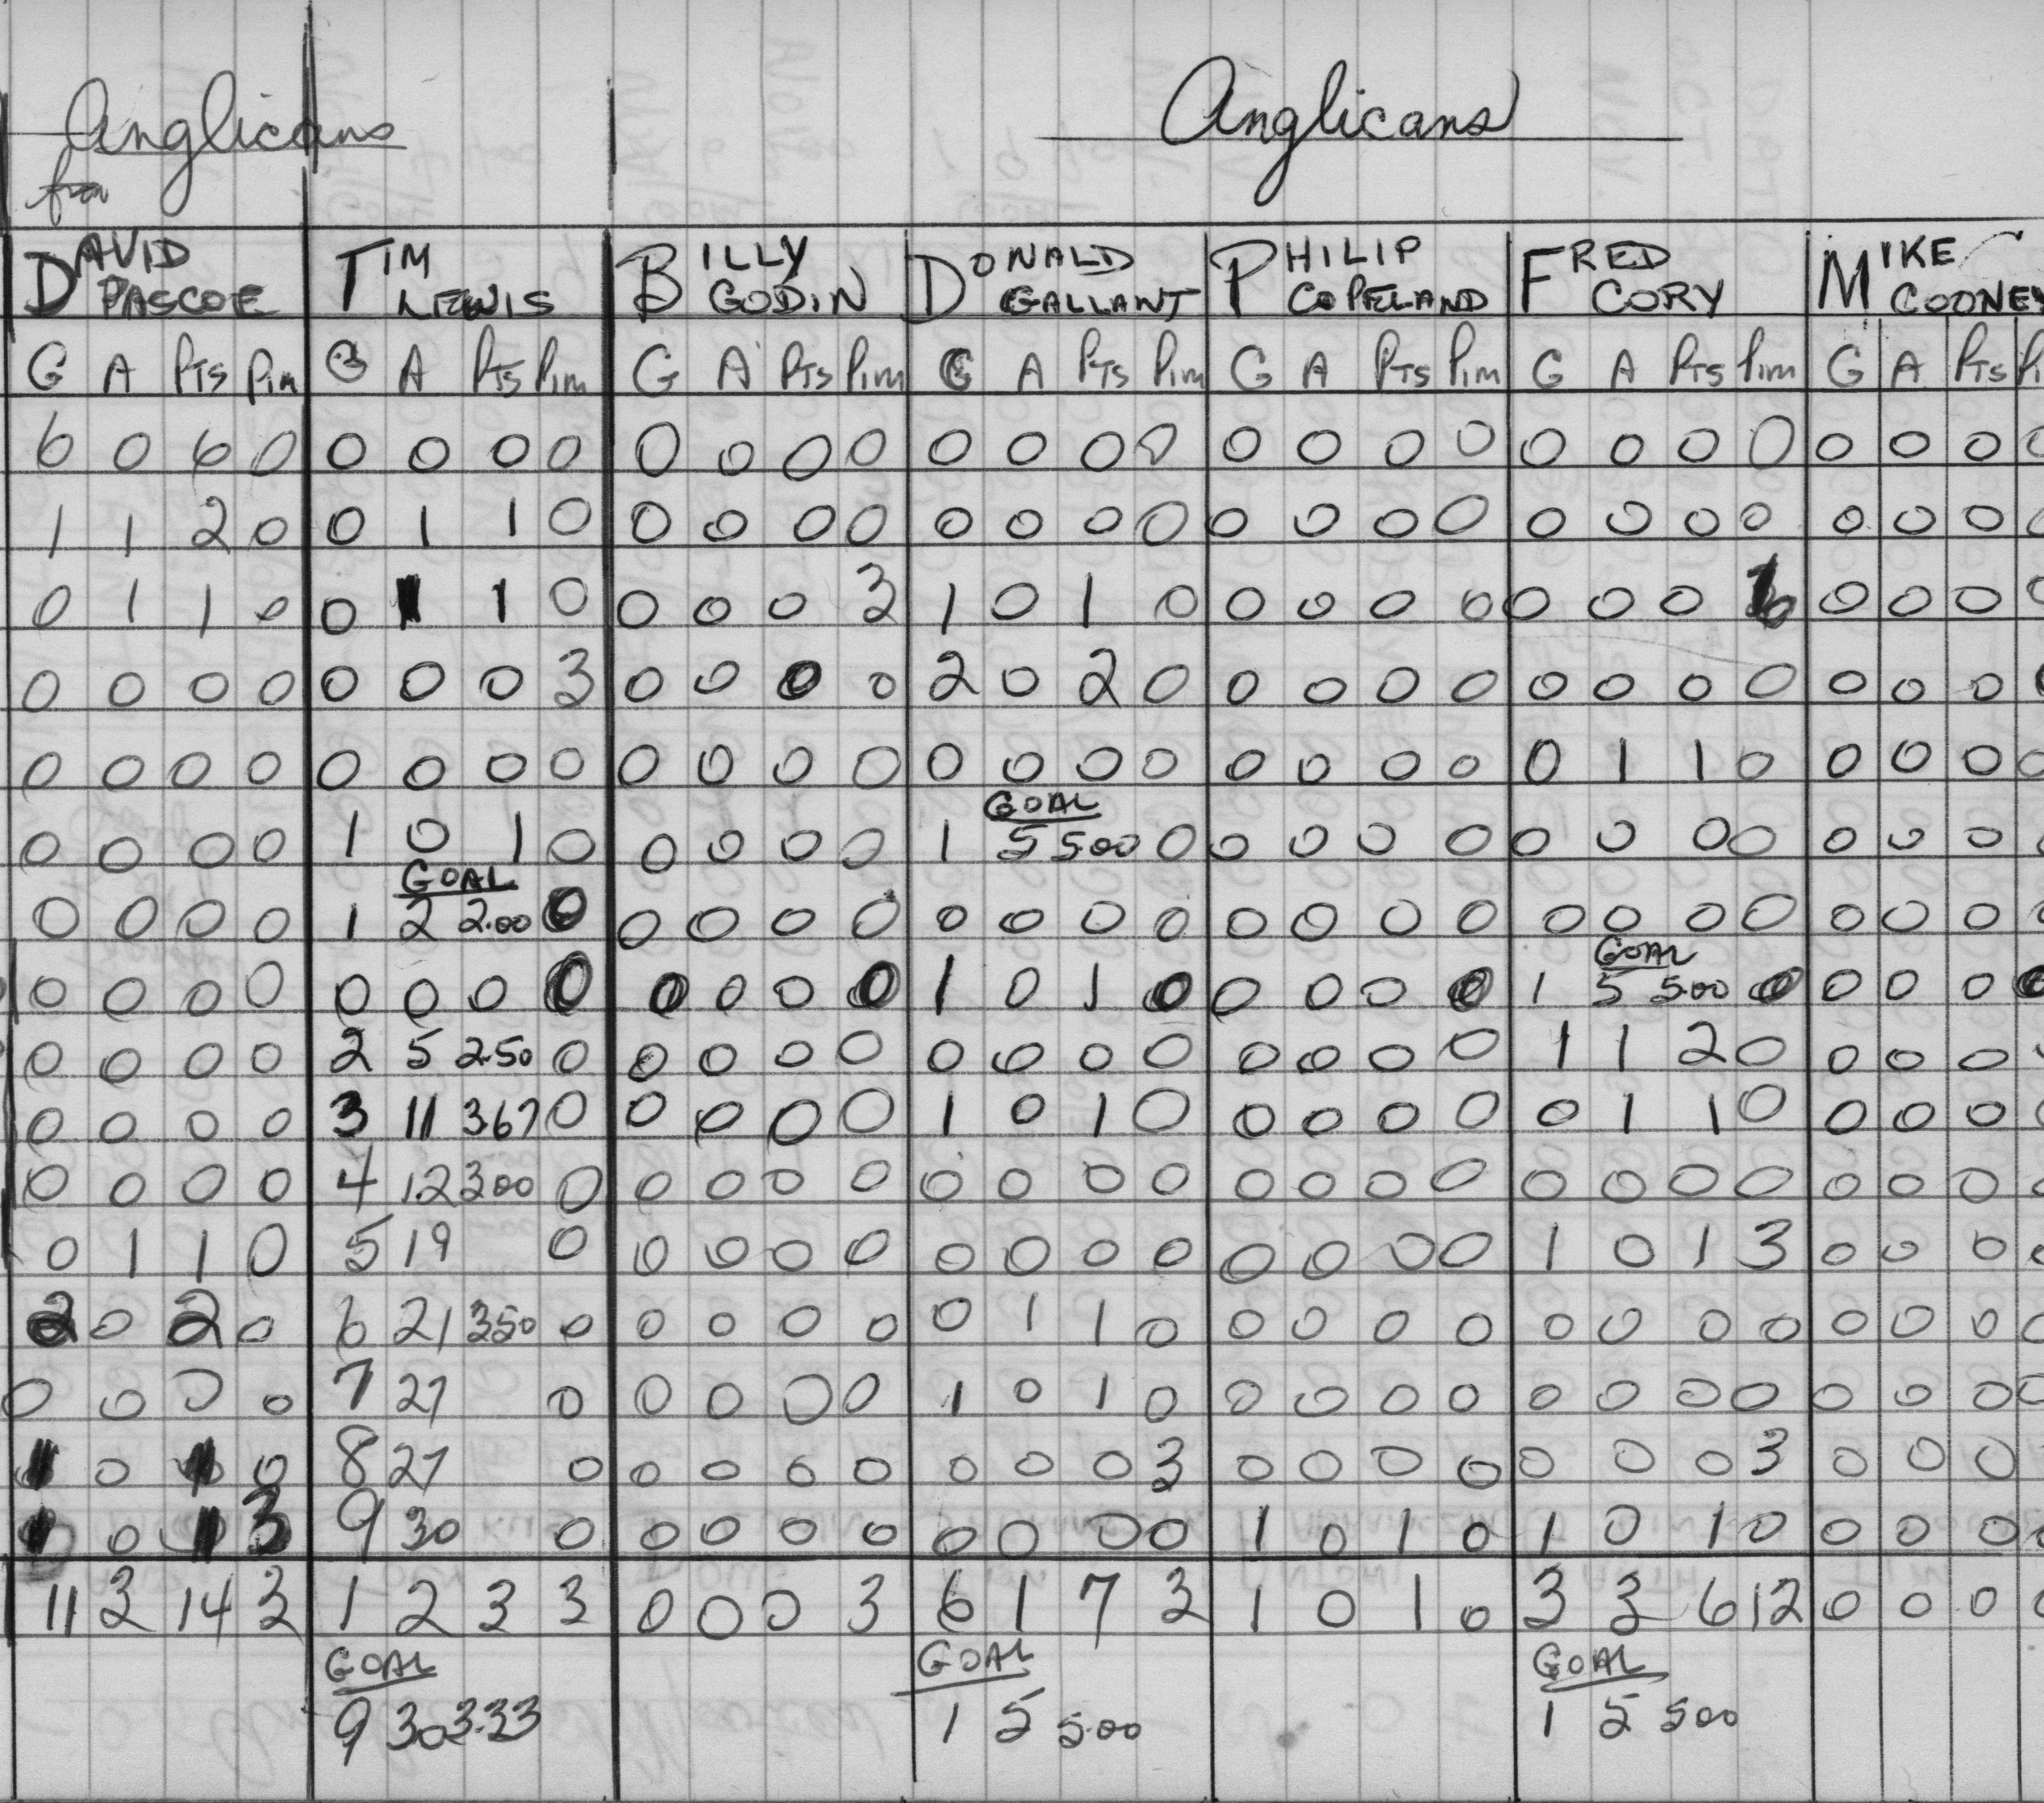 Anglicans Anglicans
from
DAVID PASCOE TIM LEWIS BILLY GODIN DONALD GALLANT PHILIP COPELAND FRED CORY MIKE COONEY
G A PTS Pim G A PTS Pim G A PTS Pim G A PTS Pim G A PTS Pim G A PTS Pim G A PTS
6 0 6 0 0 0 0 0 0 0 0 0 0 0 0 0 0 0 0 0 0 0 0 0 0 0 0 0
1 1 2 0 0 1 1 0 0 0 0 0 0 0 0 0 0 0 0 0 0 0 0 0 0 0 0 0
0 1 1 0 0 1 1 0 0 0 0 3 1 0 1 0 0 0 0 0 0 0 0 0 0 0 0
0 0 0 0 0 0 0 3 0 0 0 0 2 0 2 0 0 0 0 0 0 0 0 0 0 0 0 0
0 0 0 0 0 0 0 0 0 0 0 0 0 0 0 0 0 0 0 0 0 1 1 0 0 0 0 0
GOAL
0 0 0 0 1 0 1 0 0 0 0 0 1 5 5.00 0 0 0 0 0 0 0 0 0 0 0 0 0
GOAL
0 0 0 0 1 2 2.00 0 0 0 0 0 0 0 0 0 0 0 0 0 0 0 0 0 0 0 0 0
GOAL
0 0 0 0 0 0 0 0 0 0 0 0 1 0 1 0 0 0 0 0 1 5 5.00 0 0 0 0 0
0 0 0 0 2 5 2.50 0 0 0 0 0 0 0 0 0 0 0 0 0 1 1 2 0 0 0 0
0 0 0 0 3 11 367 0 0 0 0 0 1 0 1 0 0 0 0 0 0 1 1 0 0 0 0 0
0 0 0 0 4 12 300 0 0 0 0 0 0 0 0 0 0 0 0 0 0 0 0 0 0 0 0 0
0 1 1 0 5 19 0 0 0 0 0 0 0 0 0 0 0 0 0 1 0 1 3 0 0 0 0
2 0 2 0 6 21 350 0 0 0 0 0 0 1 1 0 0 0 0 0 0 0 0 0 0 0 0 0
0 0 0 0 7 27 0 0 0 0 0 1 0 1 0 0 0 0 0 0 0 0 0 0 0 0 0
1 0 1 0 8 27 0 0 0 0 0 0 0 0 3 0 0 0 0 0 0 0 3 0 0 0
1 0 1 3 9 30 0 0 0 0 0 0 0 0 0 1 0 1 0 1 0 1 0 0 0 0 0
11 3 14 3 1 2 3 3 0 0 0 3 6 1 7 3 1 0 1 0 3 3 6 12 0 0 0 0
GOAL GOAL GOAL
9 30 3.33 1 5 5.00 1 5 500